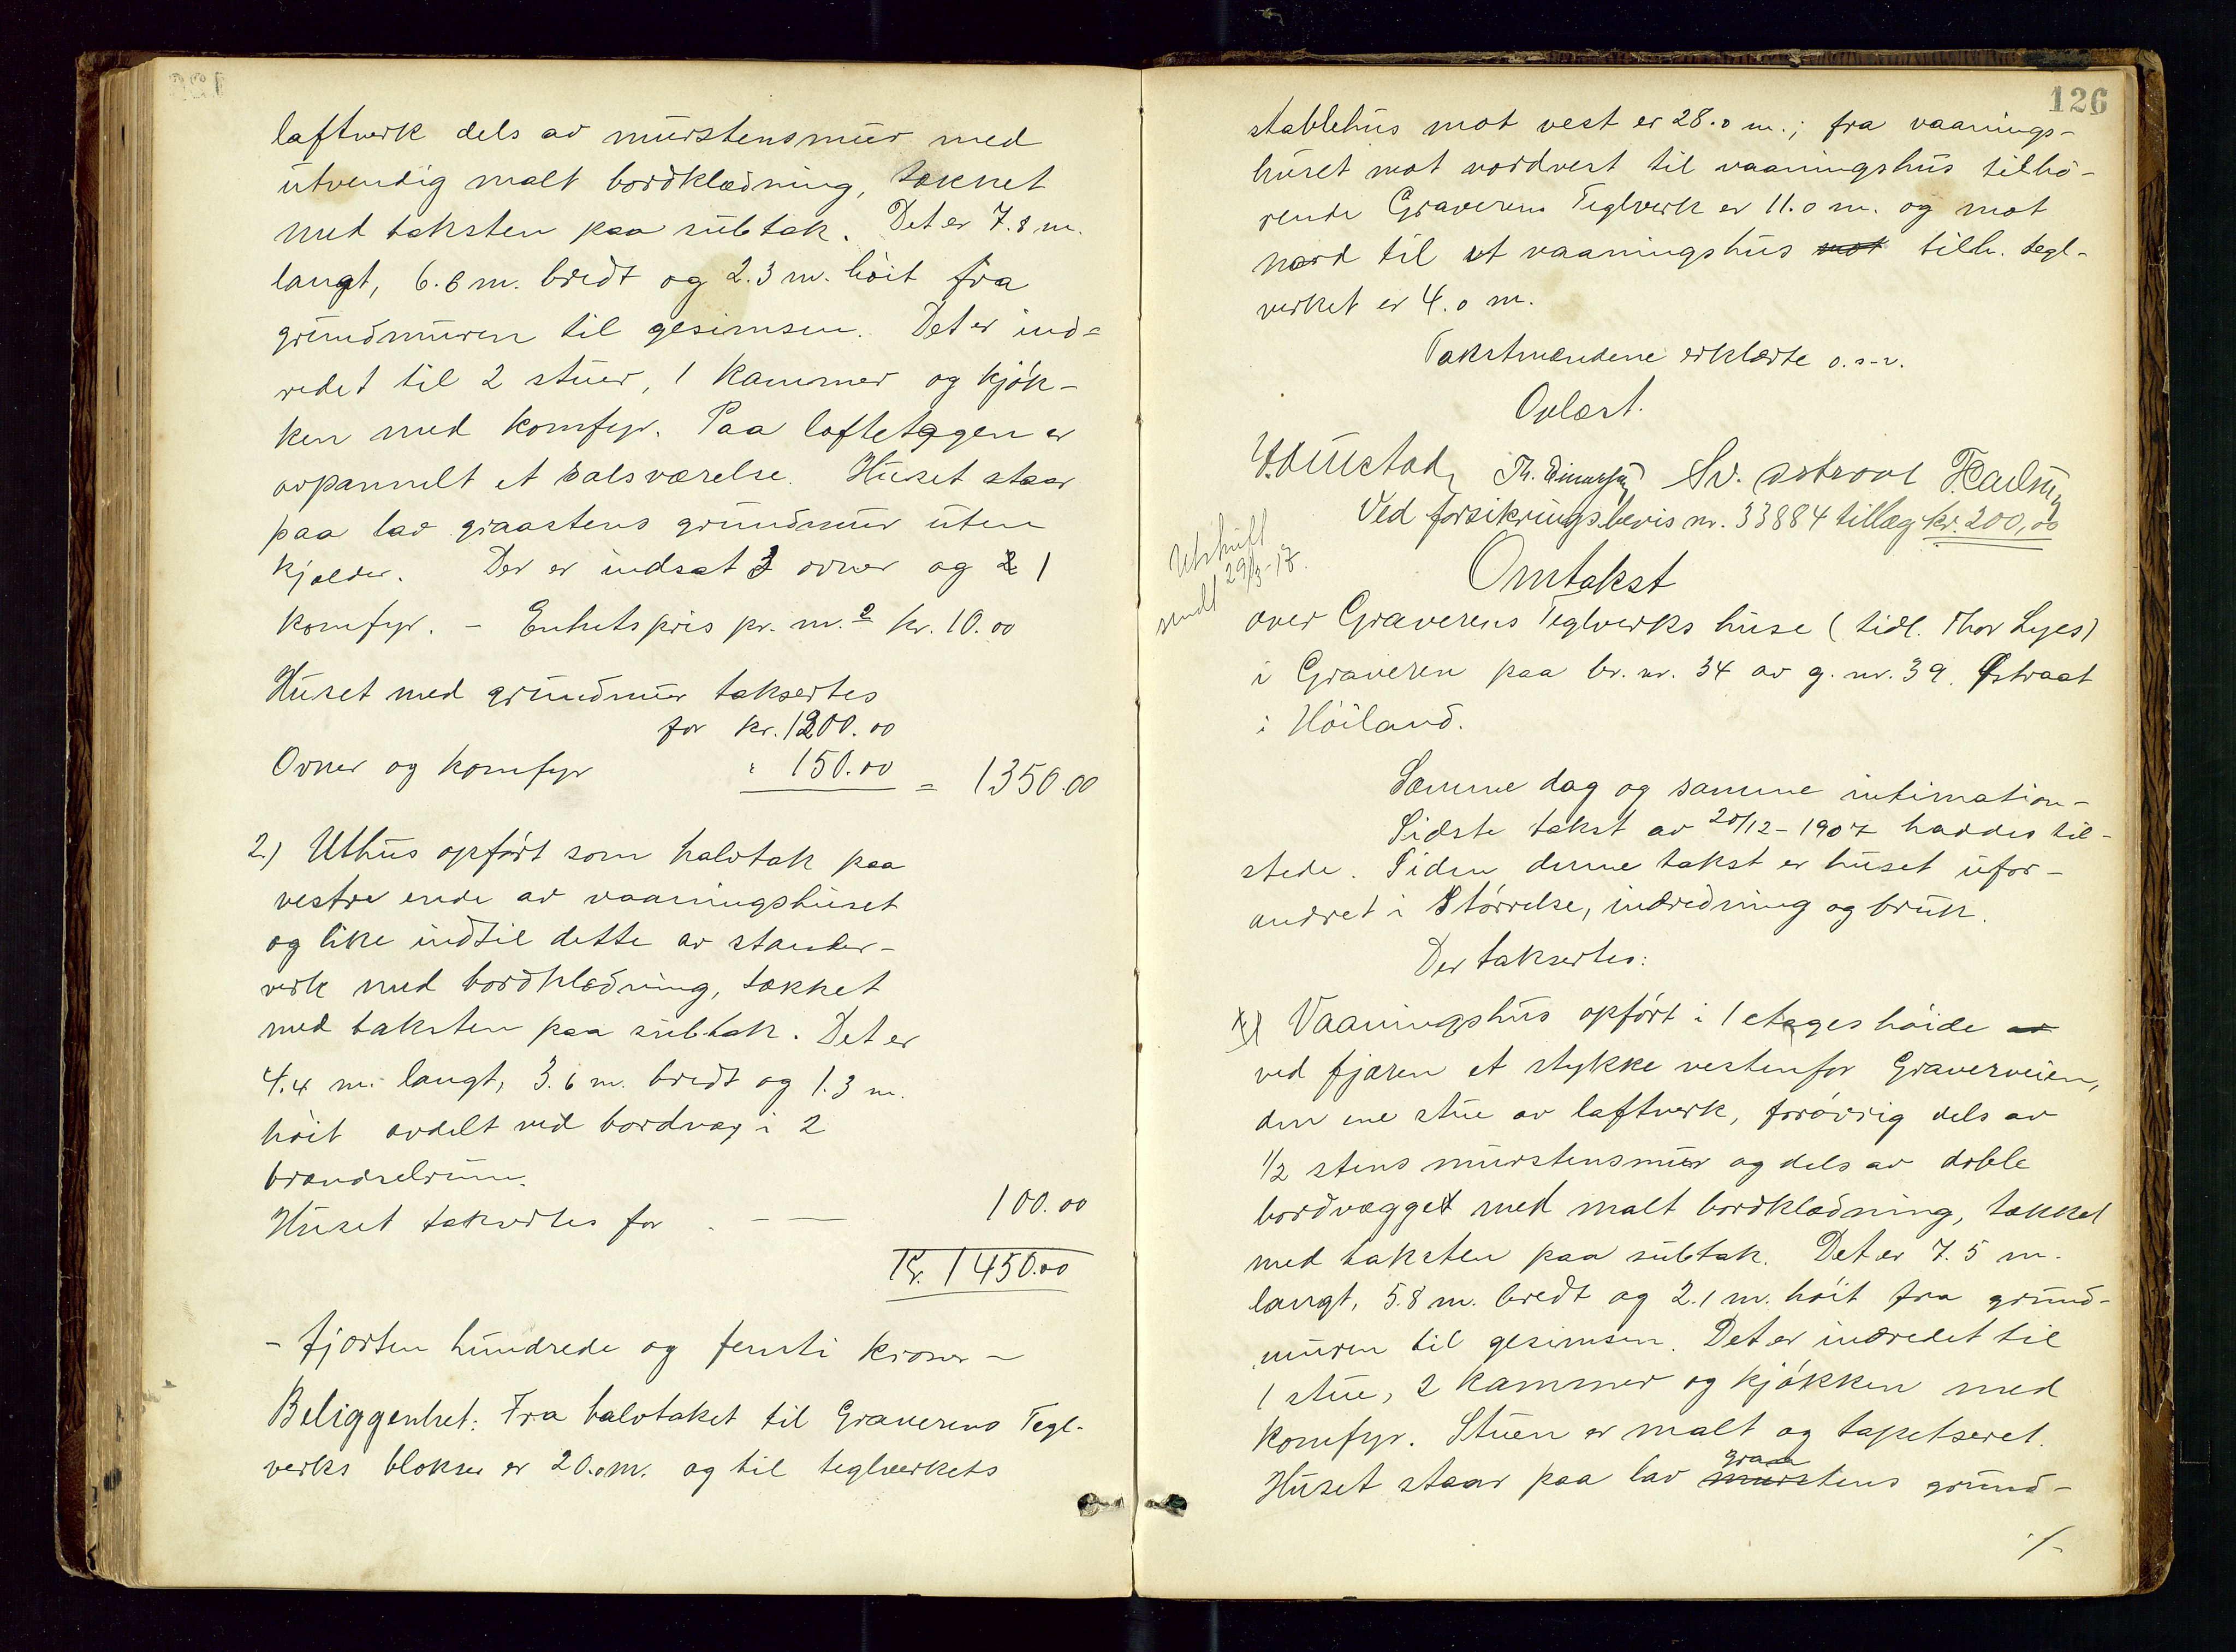 laftverk dels av murstensmur med
utvendig malt bordklædning, tækket
med taksten paa subtak. Det er 7.8 m.
langt, 6.6 m. bredt og 2.3 m. höit fra
grundmuren til gesimsen. Det er ind-
redet til 2 stuer, 1 kammer og kjök-
ken med komfyr. Paa loftetagen er
avpannelt et værelse. Huset staar
paa lav graastens grundmur uten
kjælder. Der er indsat 3 ovner og 1
komfyr. - Enhetspris pr. m.² kr. 10.00
Huset med grundmur taksertes
for kr. 1200.00
Ovner og komfyr " 150.00 = 1350.00
2.) Uthus opfört som halvtak paa
vestre ende av vaaningshuset
og like indtil dette av stender-
verk med bordklædning, tækket
med taksten paa subtak. Det er
4.4 m. langt, 3.6 m. bredt og 1.3 m.
höit avdelt ved bordvæg i 2
brændselrum.
Huset taksertes for . - — 100.00
Kr. 1450.00
- fjorten hundrede og femti kroner -
Beliggenhet: Fra halvtaket til Graverens Tegl-
verks blokser er 20.0 m. og til teglverkets
126
stablehus mot vest er 28.0 m.; fra vaanings-
huset mot nordvest til vaaningshus tilhö-
rende Graverens Teglverk er 11.0 m. og mot
nord til et vaaningshus mot tilh. tegl-
verket er 4.0 m.
Takstmændene erklærte o.s.v.
Oplæst.
Sv.
Ved forsikringsbevis nr. 33884 tillæg kr. 200,00
Utskrift
sendt 29/3-18.
Omtakst
over Graverens Teglverks huse (tidl. Thor Lyes)
i Graveren paa br. nr. 34 av g. nr. 39. Østraat
i Höiland.
Samme dag og samme intimation -
Sidste takst av 20/12-1907 haddes til-
stede. Siden denne takst er huset ufor-
andret i Störrelse, indredning og bruk.
Der taksertes:
1) Vaaningshus opfört i 1 etages höide av
ved fjæren et stykke vestenfor Graverveien,
den ene stue av laftverk, forövrig dels av
1/2 stens murstensmur og dels av doble
bordvægget med malt bordklædning, tækket
med taksten paa subtak. Det er 7.5 m.
langt, 5.8 m. bredt og 2.1 m. höit fra grund-
muren til gesimsen. Det er indredet til
1 stue, 2 kammer og kjökken med
komfyr. Stuen er malt og tapetseret.
graa
Huset staar paa lav murstens grund-
./.